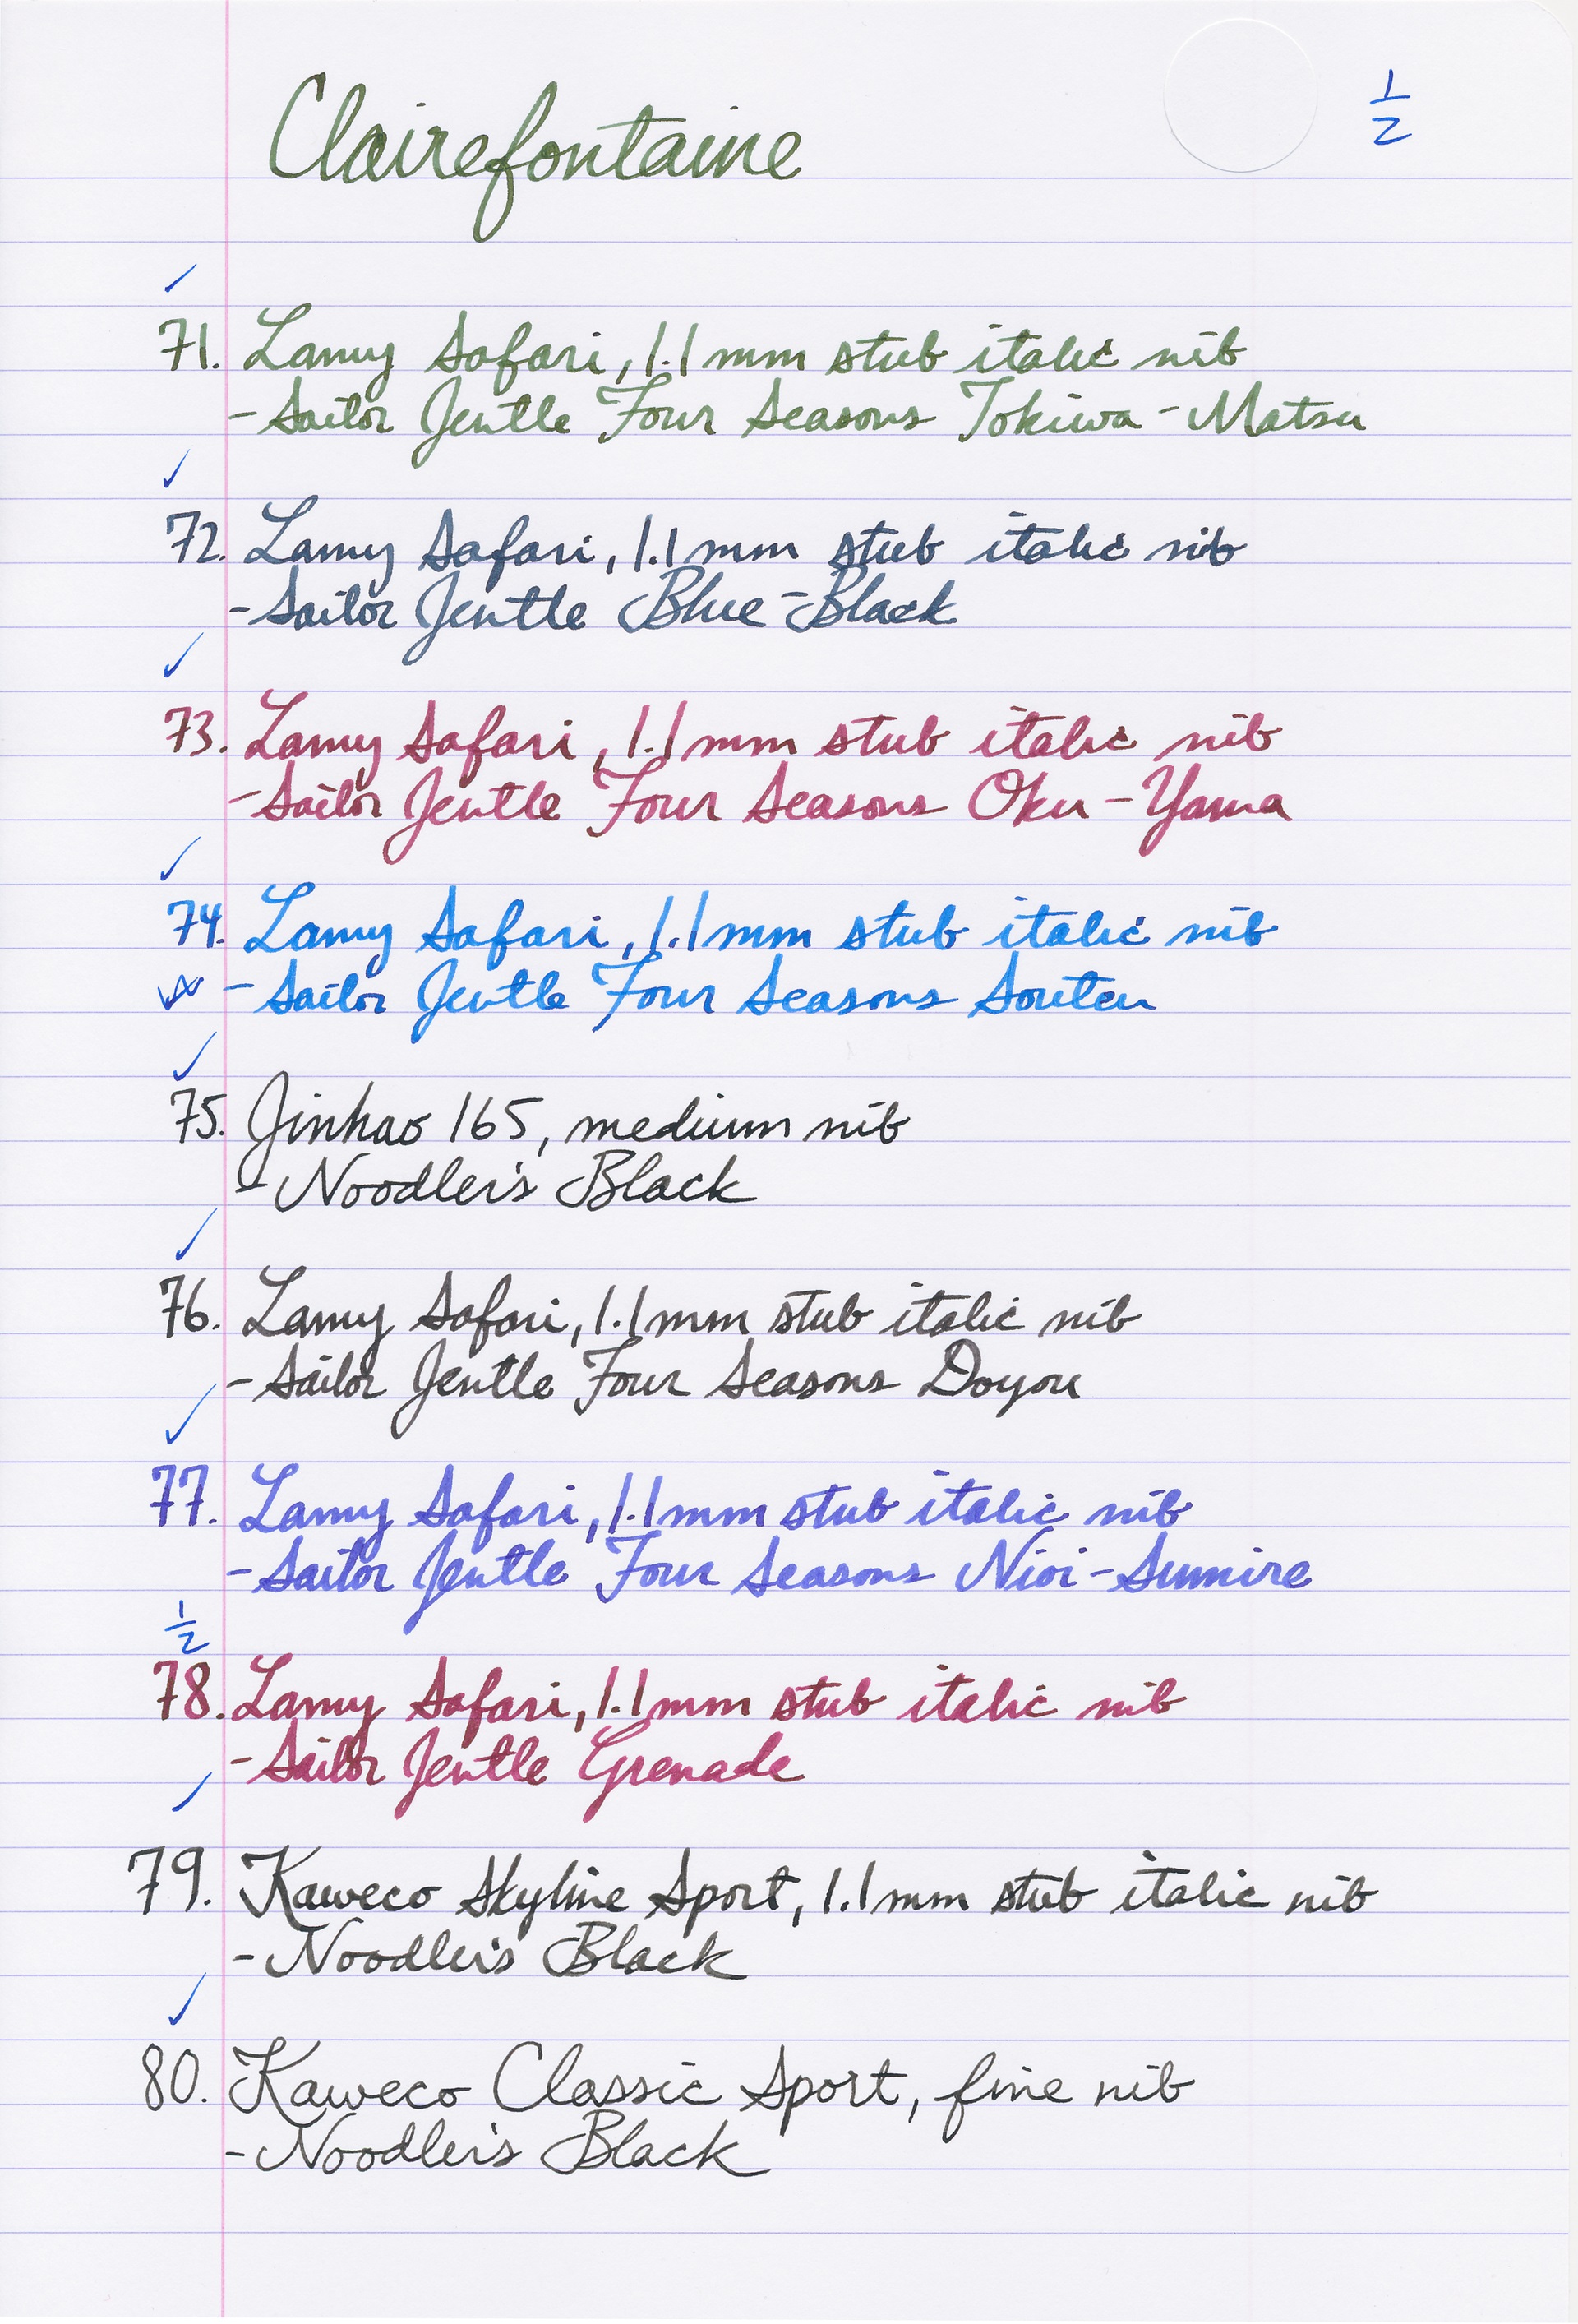 Clairefontaine
1/2
✓
71. Lamy Safari, 1.1mm stub italic nib
- Sailor Jentle Four Seasons Tokiwa-Matsu
✓
72. Lamy Safari, 1.1mm stub italic nib
- Sailor Jentle Blue-Black
✓
73. Lamy Safari, 1.1mm stub italic nib
- Sailor Jentle Four Seasons Oku-Yama
✓
74. Lamy Safari, 1.1mm stub italic nib
☆ - Sailor Jentle Four Seasons Souten
✓
75. Jinhao 165, medium nib
- Noodler's Black
✓
76. Lamy Safari, 1.1mm stub italic nib
- Sailor Jentle Four Seasons Doyou
✓
77. Lamy Safari, 1.1mm stub italic nib
- Sailor Jentle Four Seasons Nioi-Sumire
1/2
78. Lamy Safari, 1.1mm stub italic nib
- Sailor Jentle Grenade
✓
79. Kaweco Skyline Sport, 1.1mm stub italic nib
- Noodler's Black
✓
80. Kaweco Classic Sport, fine nib
- Noodler's Black